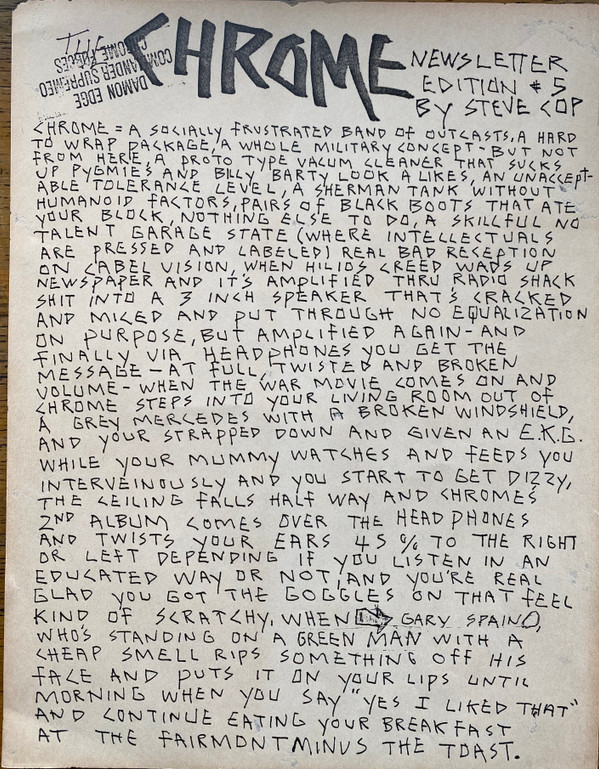 THE CHROME NEWSLETTER
EDITION # 5
BY STEVE COP
DAMON EDGE
COMMANDER SUPREMEO
CHROME FORCES
CHROME = A SOCIALLY FRUSTRATED BAND OF OUTCASTS, A HARD
TO WRAP PACKAGE, A WHOLE MILITARY CONCEPT - BUT NOT
FROM HERE, A PROTO TYPE VACUM CLEANER THAT SUCKS
UP PYGMIES AND BILLY BARTY LOOK A LIKES, AN UNACCEPT-
ABLE TOLERANCE LEVEL, A SHERMAN TANK WITHOUT
HUMANOID FACTORS, PAIRS OF BLACK BOOTS THAT ATE
YOUR BLOCK, NOTHING ELSE TO DO, A SKILLFUL NO
TALENT GARAGE STATE (WHERE INTELLECTUALS
ARE PRESSED AND LABELED) REAL BAD RECEPTION
ON CABEL VISION, WHEN HILIOS CREED WADS UP
NEWSPAPER AND IT'S AMPLIFIED THRU RADIO SHACK
SHIT INTO A 3 INCH SPEAKER THAT'S CRACKED
AND MICED AND PUT THROUGH NO EQUALIZATION
ON PURPOSE, BUT AMPLIFIED AGAIN - AND
FINALLY VIA HEADPHONES YOU GET THE
MESSAGE - AT FULL, TWISTED AND BROKEN
VOLUME - WHEN THE WAR MOVIE COMES ON AND
CHROME STEPS INTO YOUR LIVING ROOM OUT OF
A GREY MERCEDES WITH A BROKEN WINDSHIELD,
AND YOUR STRAPPED DOWN AND GIVEN AN E.K.G.
WHILE YOUR MUMMY WATCHES AND FEEDS YOU
INTERVEINOUSLY AND YOU START TO GET DIZZY,
THE CEILING FALLS HALF WAY AND CHROMES
2ND ALBUM COMES OVER THE HEADPHONES
AND TWISTS YOUR EARS 45 % TO THE RIGHT
OR LEFT DEPENDING IF YOU LISTEN IN AN
EDUCATED WAY OR NOT, AND YOU'RE REAL
GLAD YOU GOT THE GOGGLES ON THAT FEEL
KIND OF SCRATCHY, WHEN GARY SPAINO,
WHO'S STANDING ON A GREEN MAN WITH A
CHEAP SMELL RIPS SOMETHING OFF HIS
FACE AND PUTS IT ON YOUR LIPS UNTIL
MORNING WHEN YOU SAY "YES I LIKED THAT"
AND CONTINUE EATING YOUR BREAKFAST
AT THE FAIRMONT MINUS THE TOAST.